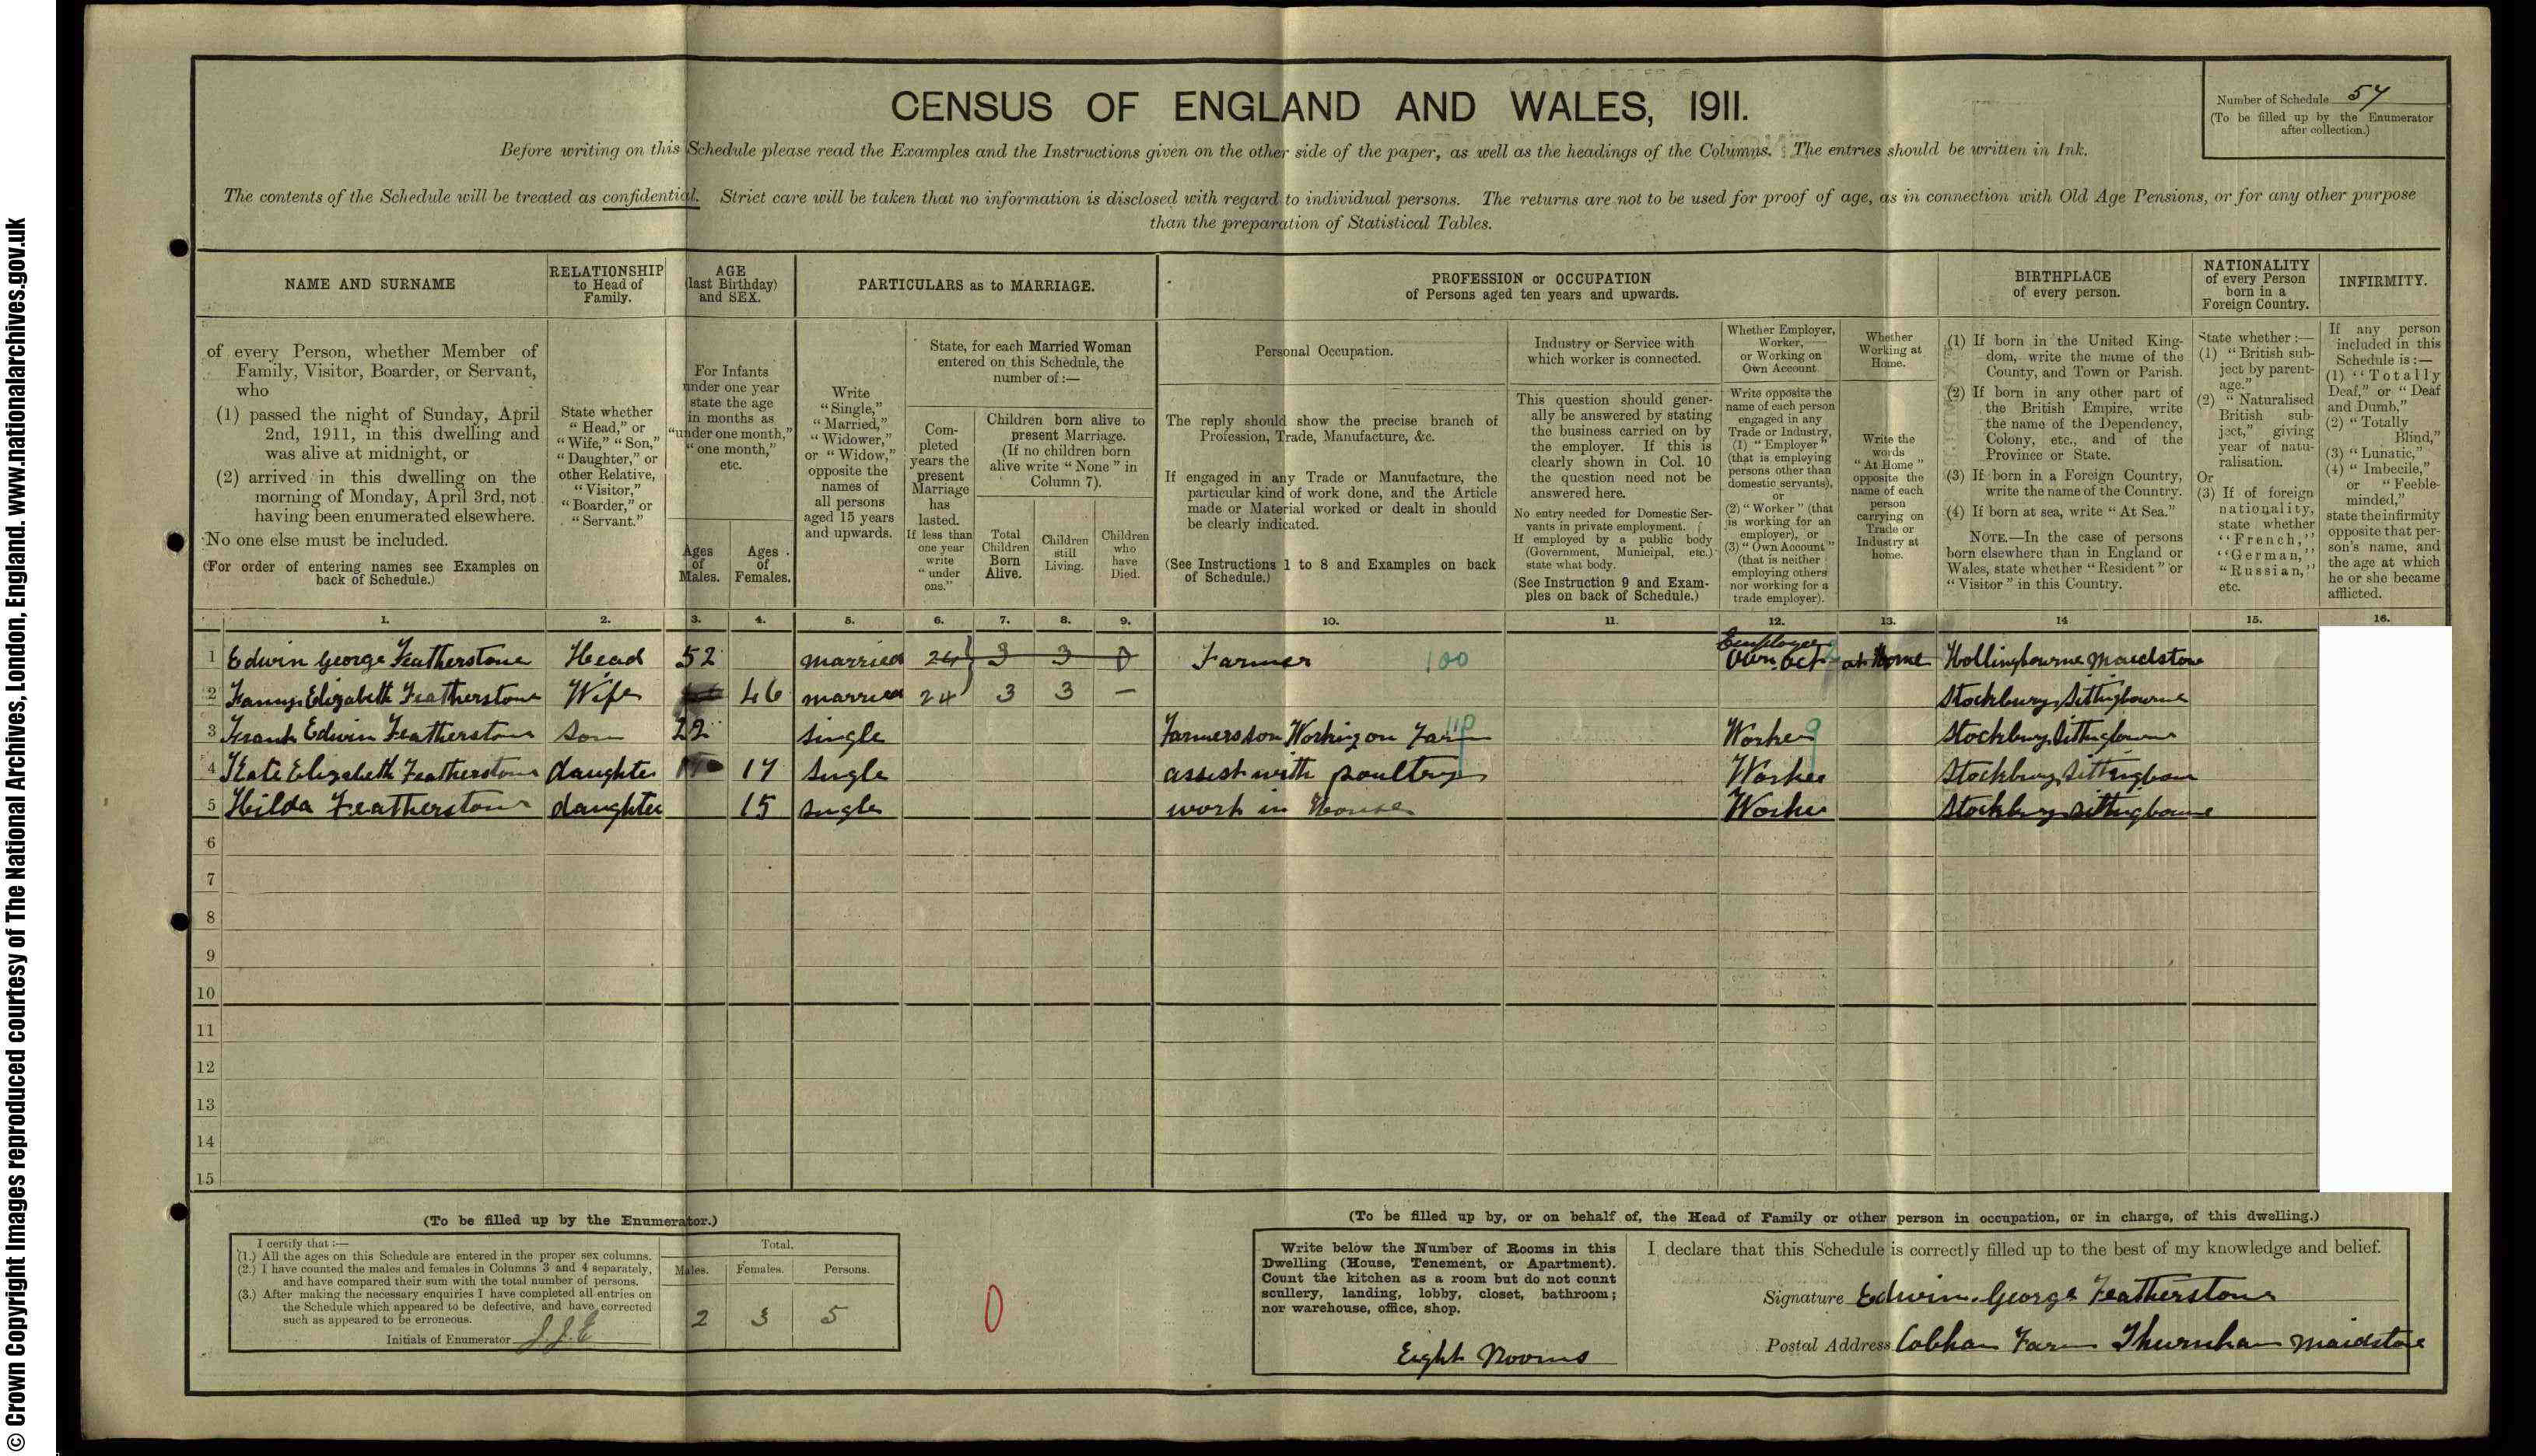 © Crown Copyright Images reproduced courtesy of The National Archives, London, England. www.nationalarchives.gov.uk
CENSUS OF ENGLAND AND WALES, 1911.
Number of Schedule 57
(To be filled up by the Enumerator
after collection.)
Before writing on this Schedule please read the Examples and the Instructions given on the other side of the paper, as well as the headings of the Columns. The entries should be written in Ink.
The contents of the Schedule will be treated as confidential. Strict care will be taken that no information is disclosed with regard to individual persons. The returns are not to be used for proof of age, as in connection with Old Age Pensions, or for any other purpose
than the preparation of Statistical Tables.
NAME AND SURNAME
of every Person, whether Member of
Family, Visitor, Boarder, or Servant,
who
(1) passed the night of Sunday, April
2nd, 1911, in this dwelling and
was alive at midnight, or
(2) arrived in this dwelling on the
morning of Monday, April 3rd, not
having been enumerated elsewhere.
No one else must be included.
(For order of entering names see Examples on
back of Schedule.)
RELATIONSHIP
to Head of
Family.
State whether
“Head,” or
“Wife,” “Son,”
“Daughter,” or
other Relative,
“Visitor,”
“Boarder,” or
“Servant.”
AGE
(last Birthday)
and SEX.
For Infants
under one year
state the age
in months as
“under one month,”
“one month,”
etc.
Ages
of
Males.
Ages
of
Females.
PARTICULARS as to MARRIAGE.
Write
“Single,”
“Married,”
“Widower,”
or “Widow,”
opposite the
names of
all persons
aged 15 years
and upwards.
State, for each Married Woman
entered on this Schedule, the
number of:—
Com-
pleted
years the
present
Marriage
has
lasted.
If less than
one year
write
“under
one.”
Children born alive to
present Marriage.
(If no children born
alive write “None” in
Column 7).
Total
Children
Born
Alive.
Children
still
Living.
Children
who
have
Died.
PROFESSION or OCCUPATION
of Persons aged ten years and upwards.
Personal Occupation.
The reply should show the precise branch of
Profession, Trade, Manufacture, &c.
If engaged in any Trade or Manufacture, the
particular kind of work done, and the Article
made or Material worked or dealt in should
be clearly indicated.
(See Instructions 1 to 8 and Examples on back
of Schedule.)
Industry or Service with
which worker is connected.
This question should gener-
ally be answered by stating
the business carried on by
the employer. If this is
clearly shown in Col. 10
the question need not be
answered here.
No entry needed for Domestic Ser-
vants in private employment.
If employed by a public body
(Government, Municipal, etc.)
state what body.
(See Instruction 9 and Exam-
ples on back of Schedule.)
Whether Employer,
Worker,
or Working on
Own Account.
Write opposite the
name of each person
engaged in any
Trade or Industry,
(1) “Employer”
(that is employing
persons other than
domestic servants),
or
(2) “Worker” (that
is working for an
employer), or
(3) “Own Account”
(that is neither
employing others
nor working for a
trade employer).
Whether
Working at
Home.
Write the
words
“At Home”
opposite the
name of each
person
carrying on
Trade or
Industry at
home.
BIRTHPLACE
of every person.
(1) If born in the United King-
dom, write the name of the
County, and Town or Parish.
(2) If born in any other part of
the British Empire, write
the name of the Dependency,
Colony, etc., and of the
Province or State.
(3) If born in a Foreign Country,
write the name of the Country.
(4) If born at sea, write “At Sea.”
NOTE.—In the case of persons
born elsewhere than in England or
Wales, state whether “Resident” or
“Visitor” in this Country.
NATIONALITY
of every Person
born in a
Foreign Country.
State whether:—
(1) “British sub-
ject by parent-
age.”
(2) “Naturalised
British sub-
ject,” giving
year of natu-
ralisation.
Or
(3) If of foreign
nationality,
state whether
“French,”
“German,”
“Russian,”
etc.
INFIRMITY.
If any person
included in this
Schedule is:—
(1) “Totally
Deaf,” or “Deaf
and Dumb,”
(2) “Totally
Blind,”
(3) “Lunatic,”
(4) “Imbecile,”
or “Feeble-
minded,”
state the infirmity
opposite that per-
son's name, and
the age at which
he or she became
afflicted.
1. 2. 3. 4. 5. 6. 7. 8. 9. 10. 11. 12. 13. 14 15. 16.
Employer
1 Edwin George Featherstone Head 52 married 24 3 3 0 Farmer 100 Own Act at Home Hollingbourne Maidstone
2 Fanny Elizabeth Featherstone Wife 46 married 24 3 3 — Stockbury Sittingbourne
3 Frank Edwin Featherstone Son 22 Single Farmers son Working on Farm Worker 9 Stockbury Sittingbourne
4 Kate Elizabeth Featherstone daughter 17 Single assist with poultry Worker Stockbury Sittingbourne
5 Hilda Featherstone daughter 15 single work in House Worker Stockbury Sittingbourne
6
7
8
9
10
11
12
13
14
15
(To be filled up by the Enumerator.)
I certify that:—
(1.) All the ages on this Schedule are entered in the proper sex columns.
(2.) I have counted the males and females in Columns 3 and 4 separately,
and have compared their sum with the total number of persons.
(3.) After making the necessary enquiries I have completed all entries on
the Schedule which appeared to be defective, and have corrected
such as appeared to be erroneous.
Initials of Enumerator
Total.
Males. Females. Persons.
2 3 5
0
(To be filled up by, or on behalf of, the Head of Family or other person in occupation, or in charge, of this dwelling.)
Write below the Number of Rooms in this
Dwelling (House, Tenement, or Apartment).
Count the kitchen as a room but do not count
scullery, landing, lobby, closet, bathroom;
nor warehouse, office, shop.
Eight Rooms
I declare that this Schedule is correctly filled up to the best of my knowledge and belief.
Signature Edwin George Featherstone
Postal Address Cobham Farm Thurnham Maidstone